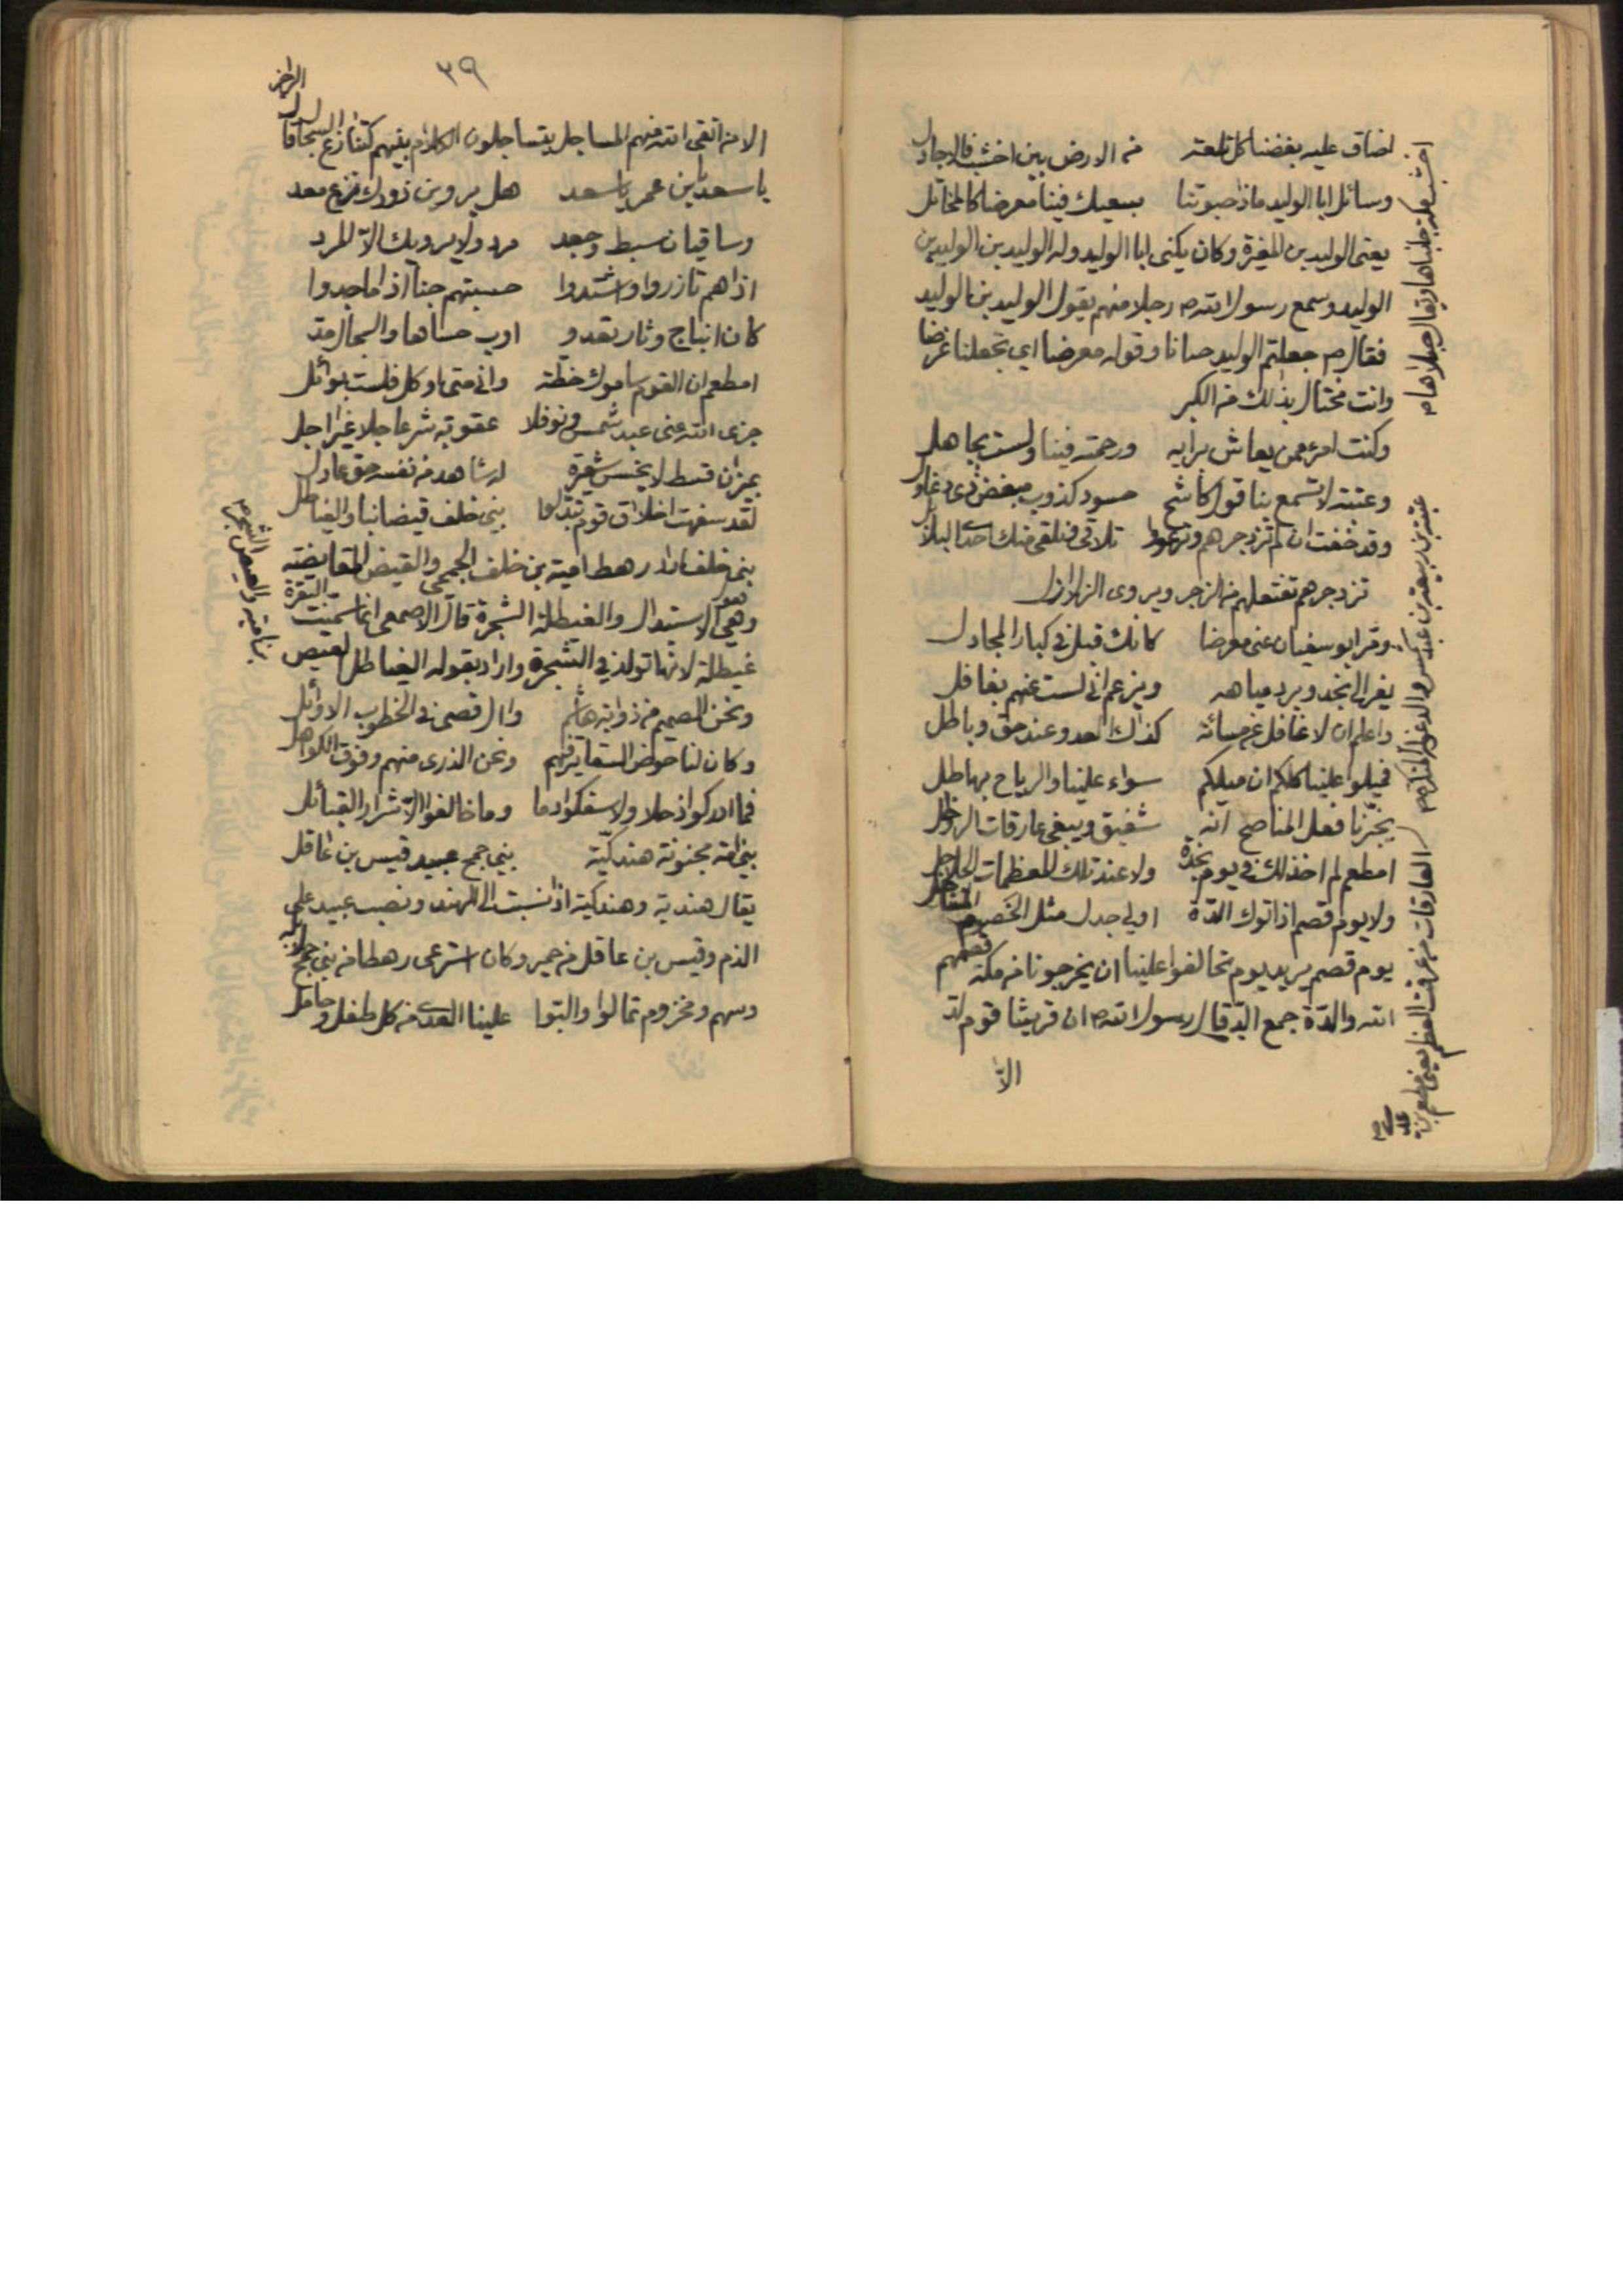 اضاق عليه بغضنا كل تلعة من الارض بين اخشب فالاجادل
وسائل ابا الوليد ماذا حبوتنا بسعيك فينا معرضا كالمخاتل
يعنى الوليد بن المغيرة وكان يكنى ابا الوليد وله الوليد بن الوليد بن
الوليد وسمع رسول الله ص رجلا منهم يقول الوليد بن الوليد
فقال ص جعلتم الوليد حنانا وقوله معرضا اى تجعلنا غرضا
وانت مختال بذلك من الكبر
وكنت امرء ممن يعاش برايه ورحمته فينا ولست بجاهل
وعتبة لا تسمع بنا قول كاشح حسود كذوب مبغض ذى دغاول
وقد خفت ان لم تزدجرهم وترعووا تلاقى ونلقى منك احدى البلابل
تزدجرهم تفتعلهم من الزجر ويروى الزلازل
ومر ابو سفيان عنى معرضا كانك قيل فى كبار المجادل
يفر الى نجد وبرد مياهه ويزعم انى لست عنهم بغافل
واعلم ان لا غافل عن مسائة كذاك العدو عند حق وباطل
فميلوا علينا كلكم ان ميلكم سواء علينا والرياح بهاطل
يخبرنا فعل المناصح انه شفيق ويبغى عارقات الرواجل
امطعم لم اخذلك فى يوم نجدة ولا عند تلك المعظمات الجلاجل
ولا يوم قصم اذ اتوك الدة اولى جدل مثل الخصوم المساجل
يوم قصم يريد يوم تحالفوا علينا ان يخرجونا من مكة قصمهم
الله والدة جمع الد قال رسول الله ص ان قريشا قوم لد
الا
اخشب مكة جبلها ويقال جبلاها
عتبة بن ربيعة بن عبد شمس والدغول المنكر
العارقات من عرقت العظم يعنى مطعم بن عدى
٣٩
الا من اتقى الله منهم المساجل يتساجلون الكلام بينهم كتنازع السجال
يا سعد يا ابن عمر يا سعد هل يروين ذودك نزع معد
وساقيان سبط وجعد مرد ولا يرويك الا المرد
اذا هم تازروا واشتدوا حسبتهم جنا اذا ما جدوا
امطعم ان القوم ساموك خطة وانى متى اوكل فلست بوائل
جزى الله عنى عبد شمس ونوفلا عقوبة شر عاجلا غير اجل
بميزان قسط لا يخس شعيرة له شاهد من نفسه حق عادل
لقد سفهت اخلاق قوم تبدلوا بنى خلف قيضا بنا والغياطل
بنى خلف اراد رهط امية بن خلف الجمحى والقيض المقايضة
وهى الاستبدال والغيطلة الشجرة قال الاصمعى انما سميت البقرة
غيطلة لانها تولد فى الشجرة واراد بقوله الغياطل العيص
ونحن الصميم من ذوابة هاشم وال قصى فى الخطوب الاوائل
وكان لنا حوض السقاية فيهم ونحن الذرى منهم وفوق الكواهل
فما ادركوا ذحلا ولا سفكوا دما وما خالفوا الا شرار القبائل
بنى امة مجنونة هندكية بنى جمح عبيد قيس بن عاقل
يقال هندية وهندكية اذا نسبت الى الهند ونصب عبيد على
الذم وقيس بن عاقل من حمير وكان استرعى رهطا من بنى جمح
وسهم ومخزوم تمالوا والبوا علينا العدى من كل طفل وحامل